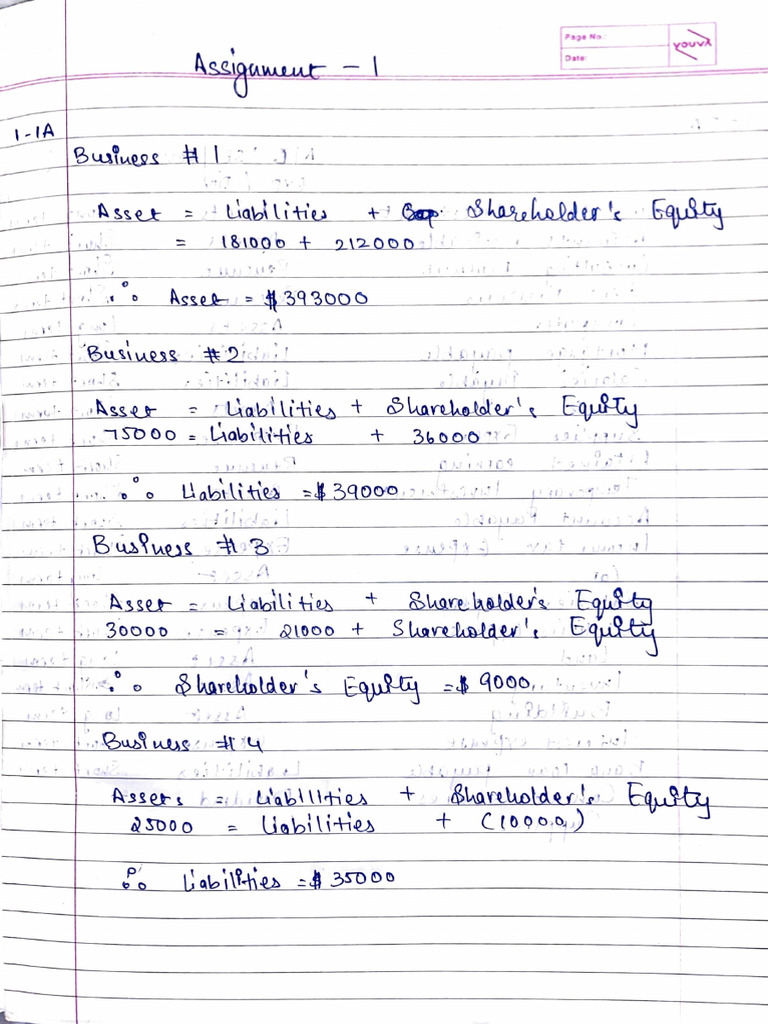 Page No:
Date:
YOUVA
Assignment - 1
1-1A
Business # 1
Asset = Liabilities + Shareholder's Equity
= 181000 + 212000
∴ Asset = $393000
Business #2
Asset = Liabilities + Shareholder's Equity
75000 = Liabilities + 36000
∴ Liabilities = $39000
Business # 3
Asset = Liabilities + Shareholder's Equity
30000 = 21000 + Shareholder's Equity
∴ Shareholder's Equity = $9000
Business # 4
Assets = Liabilities + Shareholder's Equity
25000 = Liabilities + (10000)
∴ Liabilities = $35000